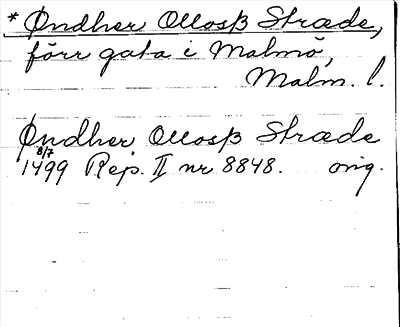 * Øndher Ollosß Stræde,
förr gata i Malmö,
Malm. l.
Øndher Ollosß Stræde
8/7
1499 Rep. II nr 8848. orig.